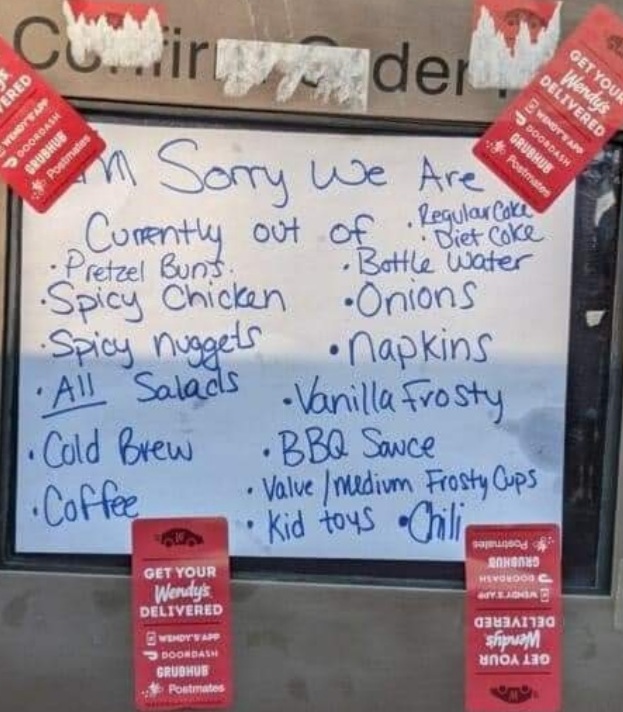 Confirm Order
I'm Sorry We Are
Currently out of
• Regular Coke
• Diet Coke
• Pretzel Buns.
• Bottle Water
• Spicy Chicken
• Onions
• Spicy nuggets
• Napkins
• All Salads
• Vanilla Frosty
• Cold Brew
• BBQ Sauce
• Coffee
• Value/medium Frosty Cups
• Kid toys • Chili
WENDY'S APP
DOORDASH
GRUBHUB
Postmates
GET YOUR
Wendy's
DELIVERED
WENDY'S APP
DOORDASH
GRUBHUB
Postmates
GET YOUR
Wendy's
DELIVERED
WENDY'S APP
DOORDASH
GRUBHUB
Postmates
GET YOUR
Wendy's
DELIVERED
WENDY'S APP
DOORDASH
GRUBHUB
Postmates